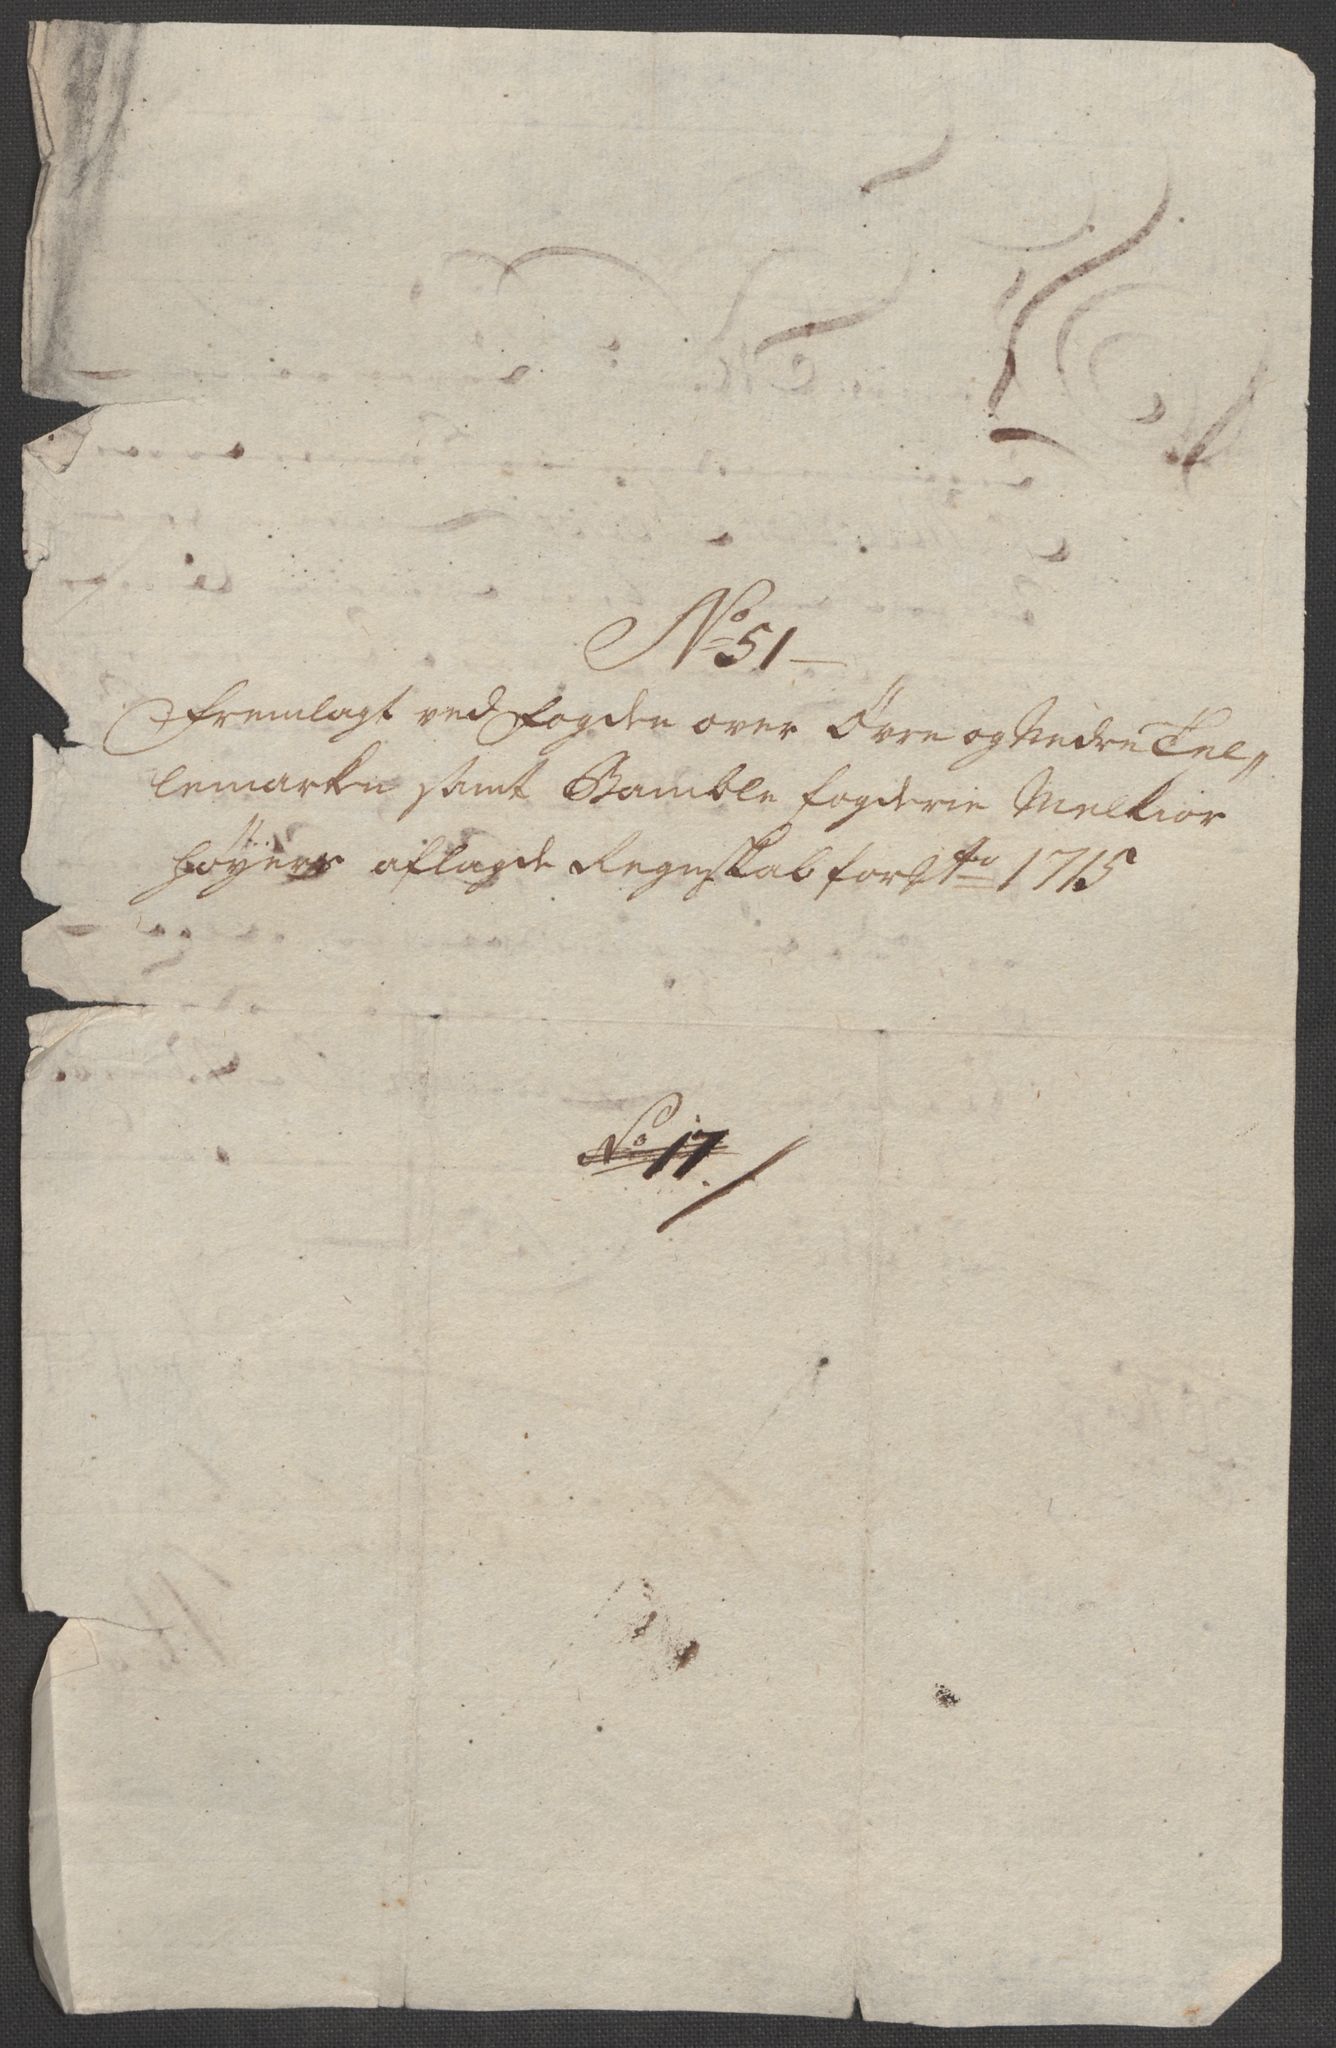 No 51
Fremlagt ved Fogden over Öfre og Nedre Tel„
lemarken samt Bamble fogderie Melkior
Høyers aflagde Regnskab for Ao 1715
No 17